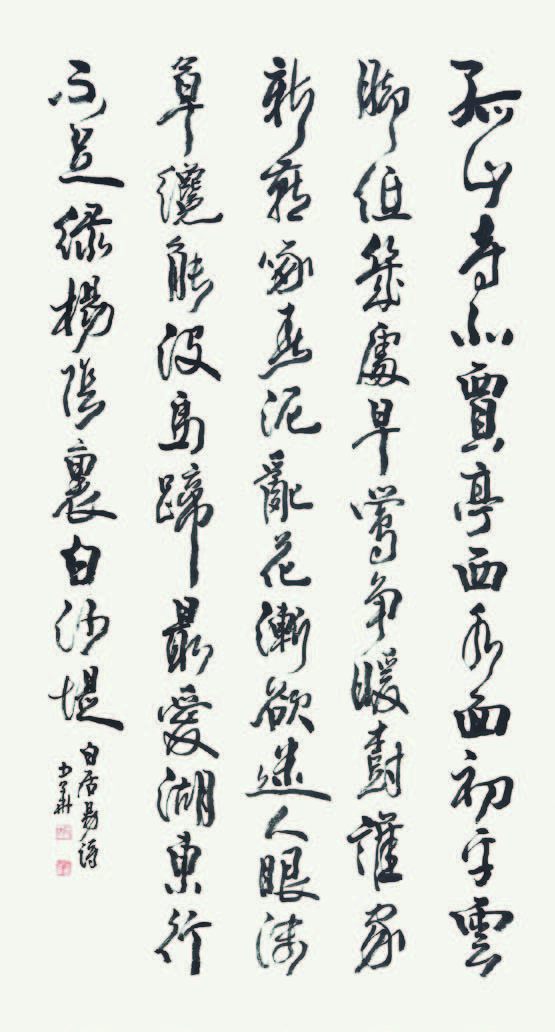 孤山寺北賈亭西水面初平雲
脚低幾處早鶯争暖樹誰家
新燕啄春泥亂花漸欲迷人眼淺
草纔能没馬蹄最愛湖東行
不足緑楊陰裏白沙堤
白居易詩